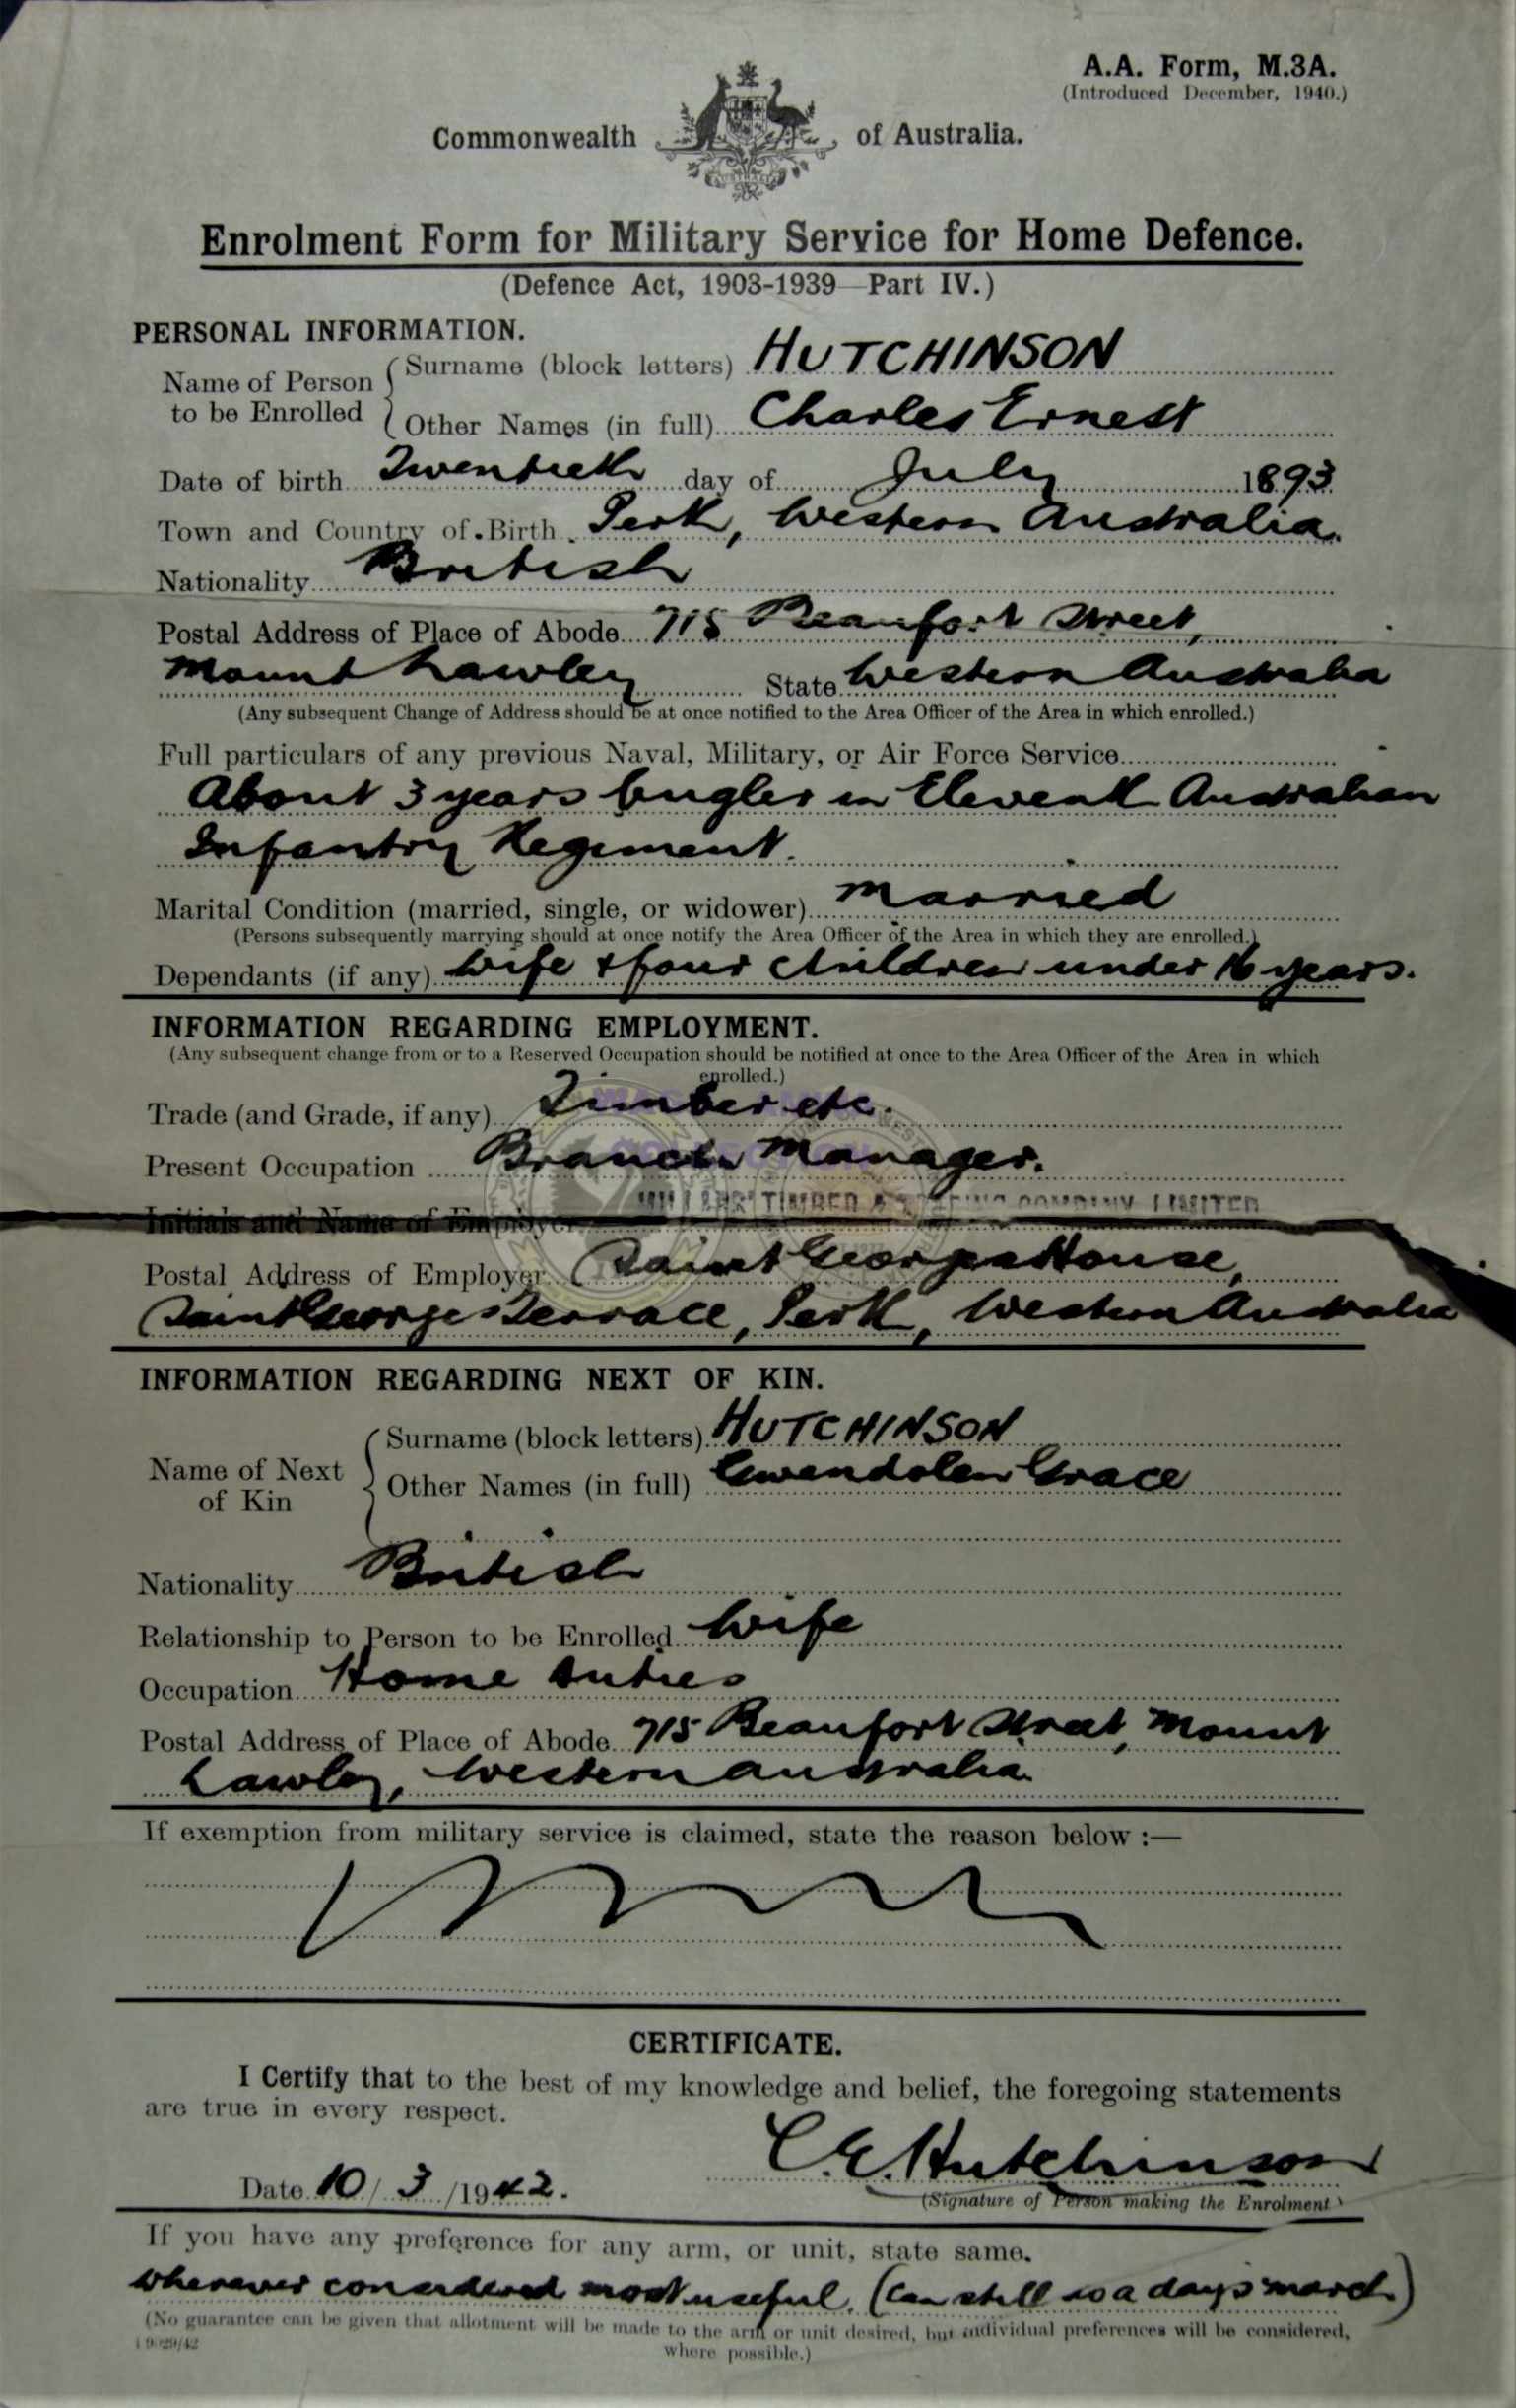 A.A. Form, M.3A.
(Introduced December, 1940.)
Commonwealth of Australia.
Enrolment Form for Military Service for Home Defence.
(Defence Act, 1903-1939—Part IV.)
PERSONAL INFORMATION.
Name of Person to be Enrolled
Surname (block letters) HUTCHINSON
Other Names (in full) Charles Ernest
Date of birth Twentieth day of July 1893
Town and Country of Birth Perth, Western Australia.
Nationality British
Postal Address of Place of Abode 715 Beaufort Street,
Mount Lawley State Western Australia
(Any subsequent Change of Address should be at once notified to the Area Officer of the Area in which enrolled.)
Full particulars of any previous Naval, Military, or Air Force Service
About 3 years bugler in Eleventh Australian
Infantry Regiment.
Marital Condition (married, single, or widower) Married
(Persons subsequently marrying should at once notify the Area Officer of the Area in which they are enrolled.)
Dependants (if any) Wife & four children under 16 years.
INFORMATION REGARDING EMPLOYMENT.
(Any subsequent change from or to a Reserved Occupation should be notified at once to the Area Officer of the Area in which
enrolled.)
Trade (and Grade, if any) Timber etc.
Present Occupation Branch Manager.
MILLARS' TIMBER & TRADING COMPANY LIMITED
Initials and Name of Employer
Postal Address of Employer Saint Georges House,
Saint Georges Terrace, Perth, Western Australia
INFORMATION REGARDING NEXT OF KIN.
Name of Next of Kin
Surname (block letters) HUTCHINSON
Other Names (in full) Gwendolen Grace
Nationality British
Relationship to Person to be Enrolled Wife
Occupation Home duties
Postal Address of Place of Abode 715 Beaufort Street, Mount
Lawley, Western Australia.
If exemption from military service is claimed, state the reason below :—
CERTIFICATE.
I Certify that to the best of my knowledge and belief, the foregoing statements
are true in every respect.
C.E. Hutchinson
Date 10/3/1942.
(Signature of Person making the Enrolment)
If you have any preference for any arm, or unit, state same.
Wherever considered most useful. (Can still do a day's march)
(No guarantee can be given that allotment will be made to the arm or unit desired, but individual preferences will be considered,
where possible.)